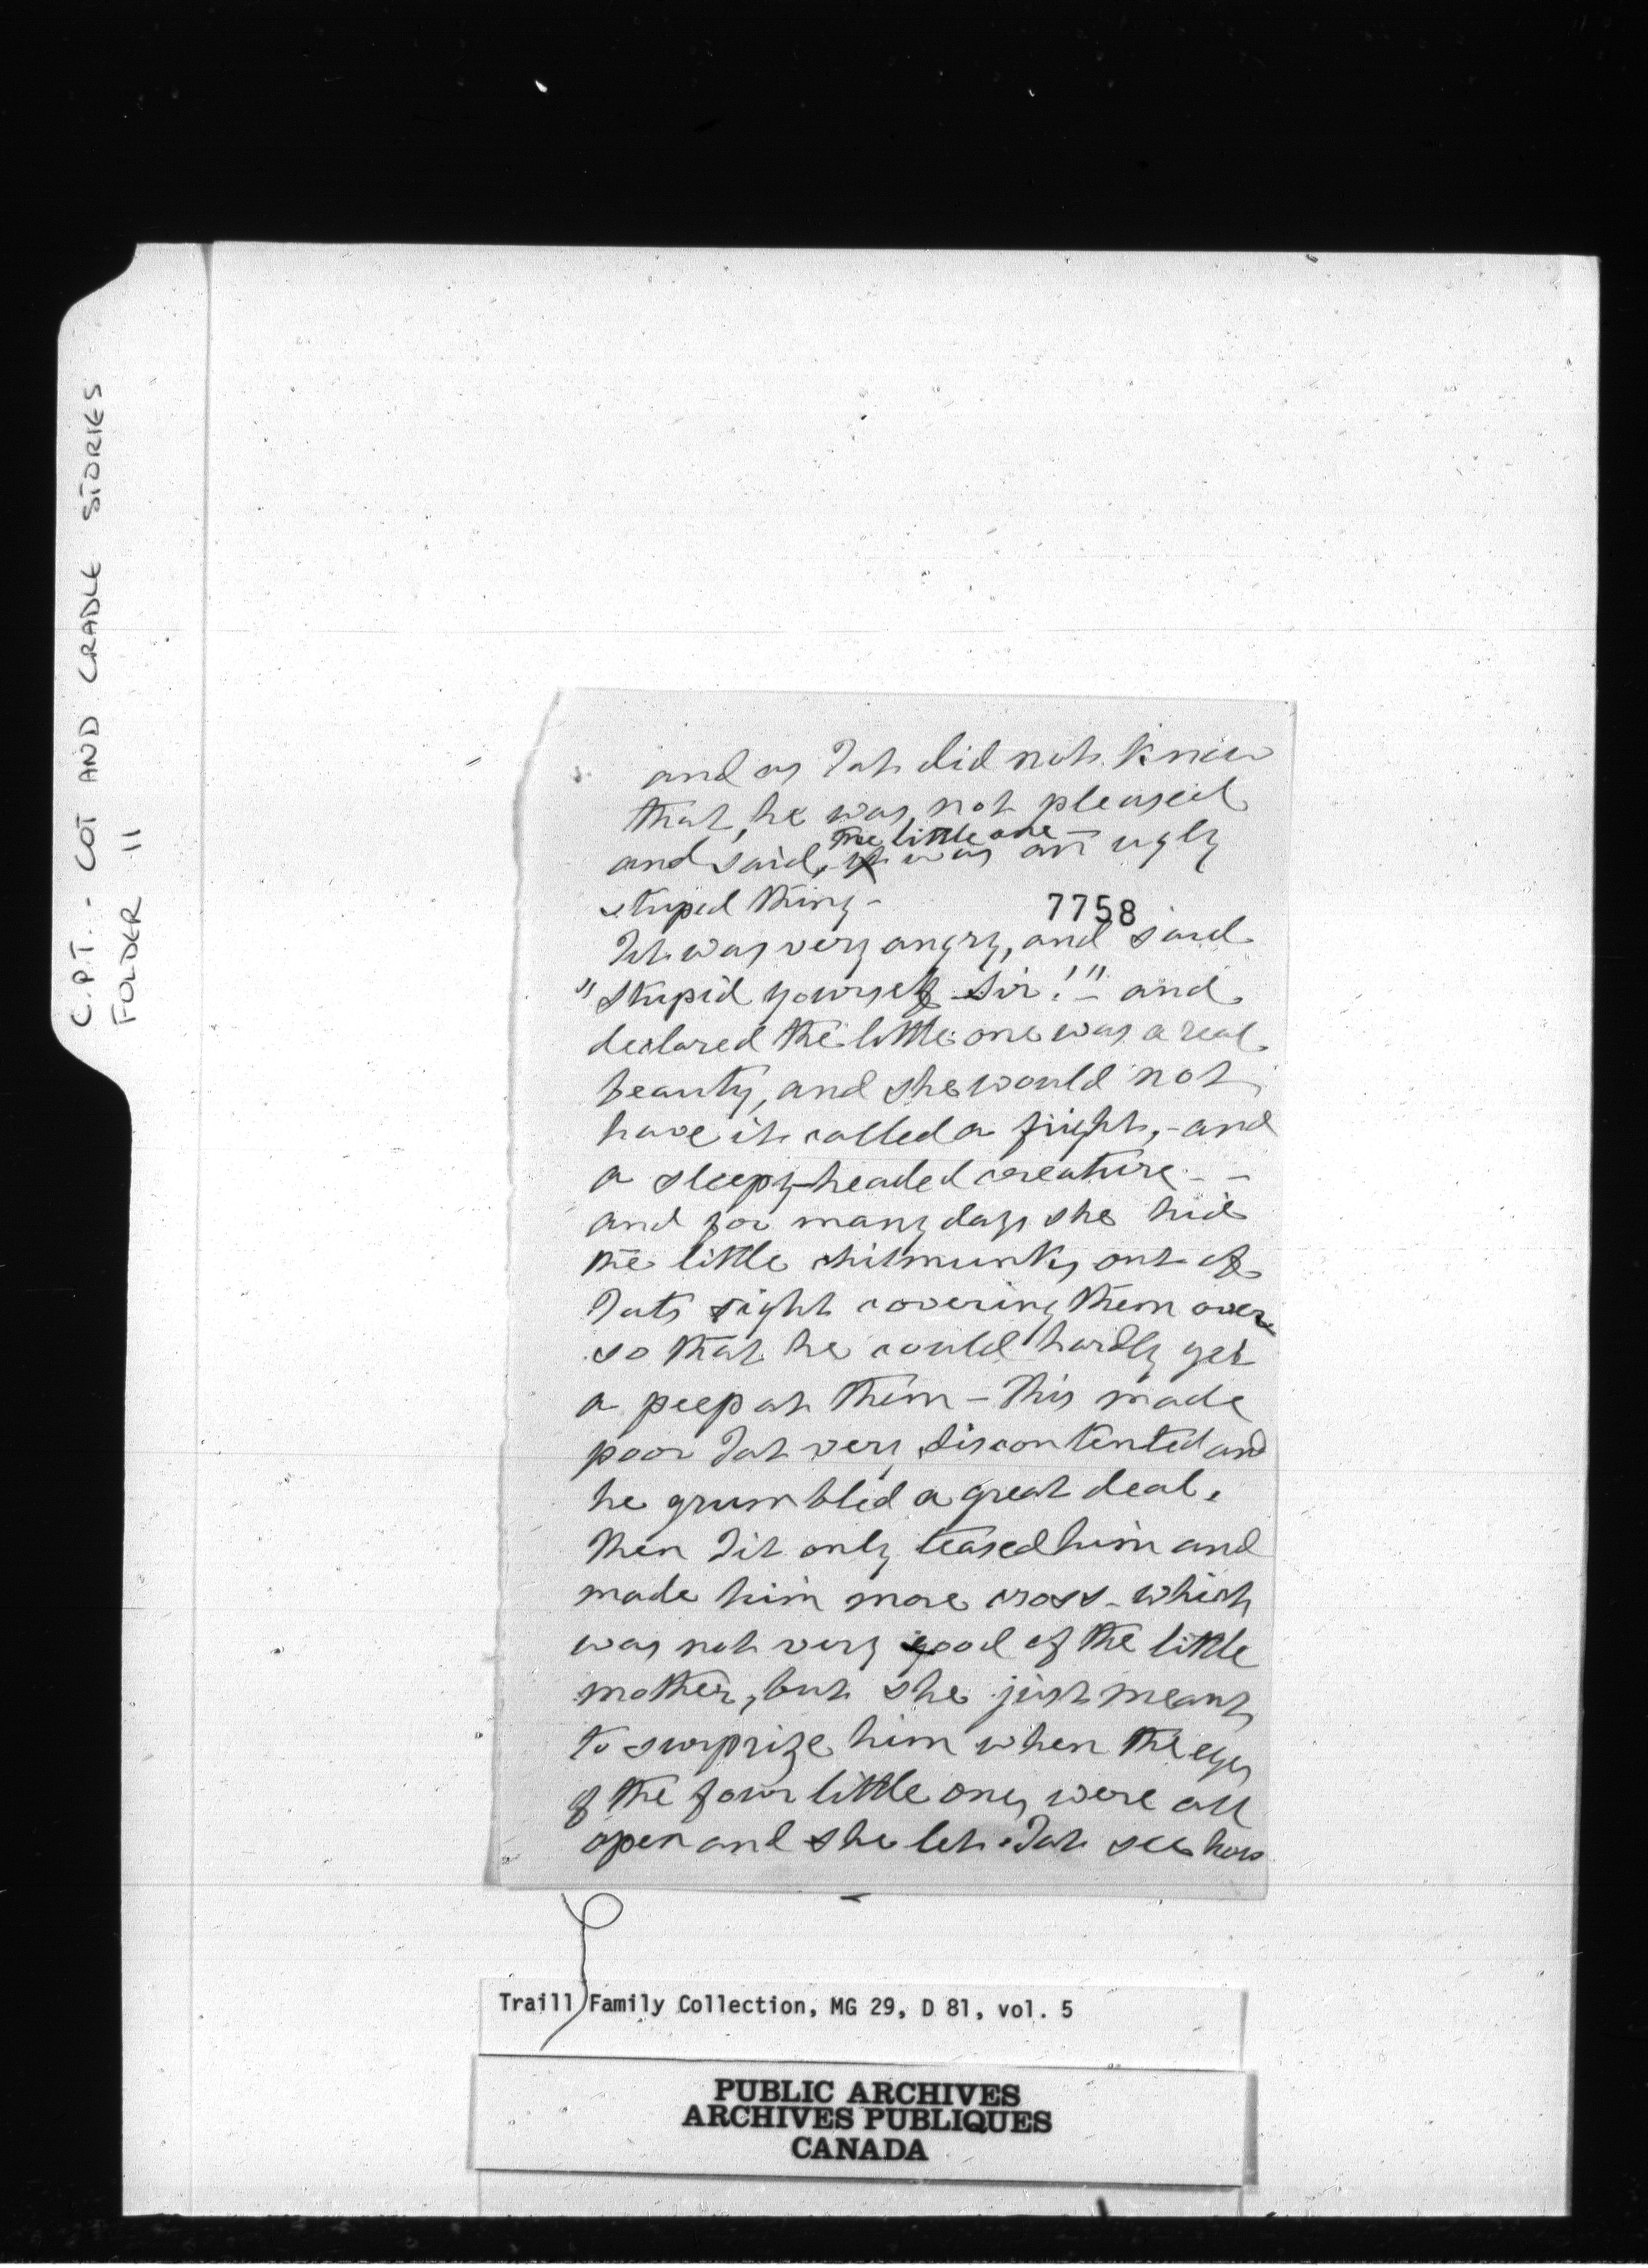 C.P.T. - COT AND CRADLE STORIES
FOLDER 11
and as Tat did not know
that, he was not pleased
the little one
and said, it was an ugly
stupid thing -
7758
Tit was very angry, and said
"Stupid yourself Sir!" - and
declared the little one was a real
beauty, and she would not
have it called a fright, - and
a sleepy-headed creature - -
and for many days she hid
the little chitmunks out of
Tats sight covering them over
so that he could hardly get
a peep at them - This made
poor Tat very discontented and
he grumbled a great deal.
Then Tit only teased him and
made him more cross - which
was not very good of the little
mother, but she just meant
to surprize him when the eyes
of the four little ones were all
open and she let Tat see how
Traill Family Collection, MG 29, D 81, vol. 5
PUBLIC ARCHIVES
ARCHIVES PUBLIQUES
CANADA